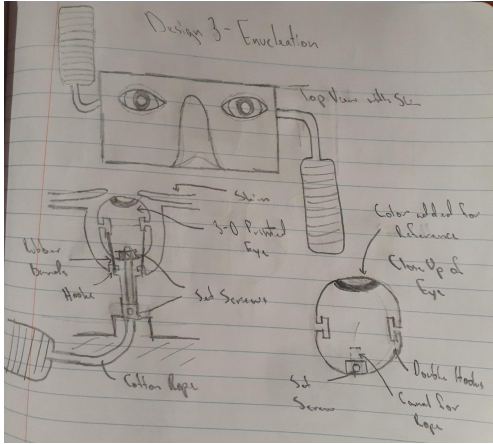 Design 3 - Enucleation
Top View with Skin
Skin
3-D Printed
Eye
Rubber
Bands
Hooks
Set Screws
Cotton Rope
Color added for
Reference
Close Up of
Eye
Double Hooks
Canal for
Rope
Set
Screw